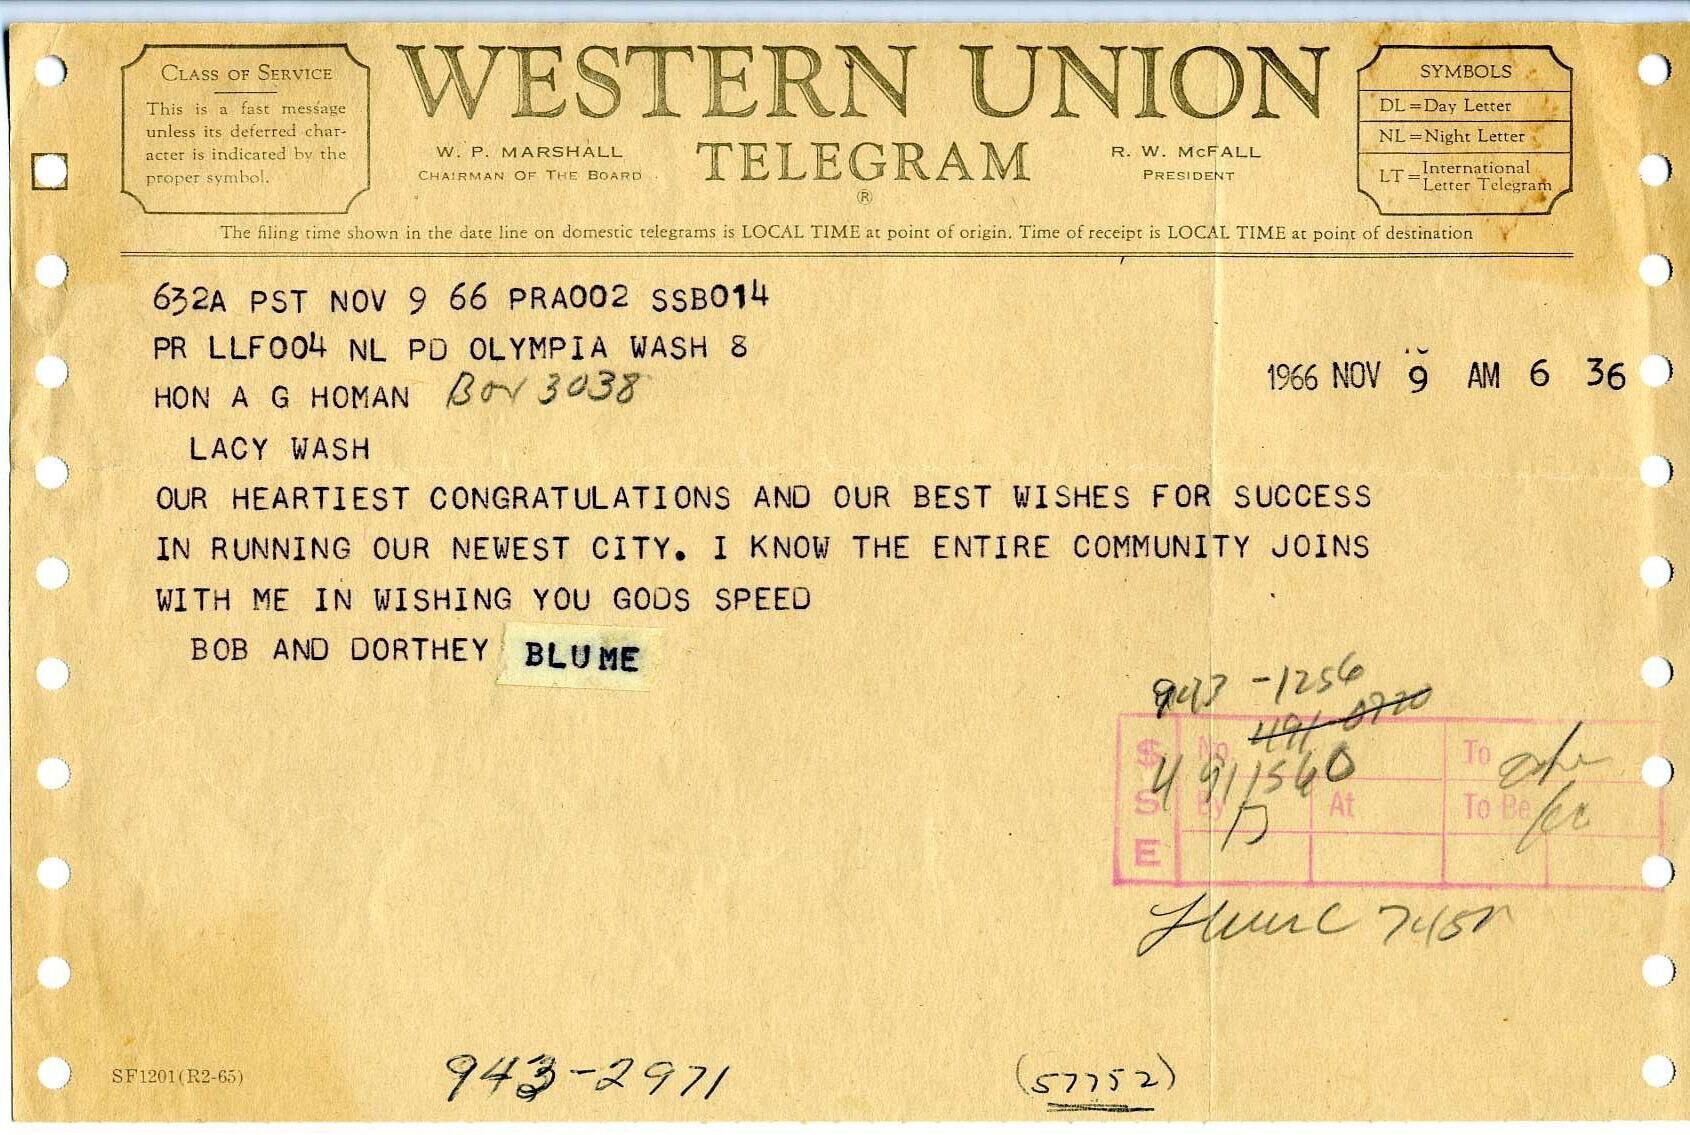 CLASS OF SERVICE
This is a fast message
unless its deferred char-
acter is indicated by the
proper symbol.
WESTERN UNION
TELEGRAM
®
W. P. MARSHALL
CHAIRMAN OF THE BOARD
R. W. McFALL
PRESIDENT
SYMBOLS
DL=Day Letter
NL=Night Letter
LT=International
Letter Telegram
The filing time shown in the date line on domestic telegrams is LOCAL TIME at point of origin. Time of receipt is LOCAL TIME at point of destination
632A PST NOV 9 66 PRA002 SSB014
PR LLF004 NL PD OLYMPIA WASH 8
1966 NOV 9 AM 6 36
HON A G HOMAN Box 3038
LACY WASH
OUR HEARTIEST CONGRATULATIONS AND OUR BEST WISHES FOR SUCCESS
IN RUNNING OUR NEWEST CITY. I KNOW THE ENTIRE COMMUNITY JOINS
WITH ME IN WISHING YOU GODS SPEED
BOB AND DORTHEY BLUME
943-1256
491-0720
$ No. To
4911560
S By At To Be
E
943-2971
(57752)
SF1201(R2-65)